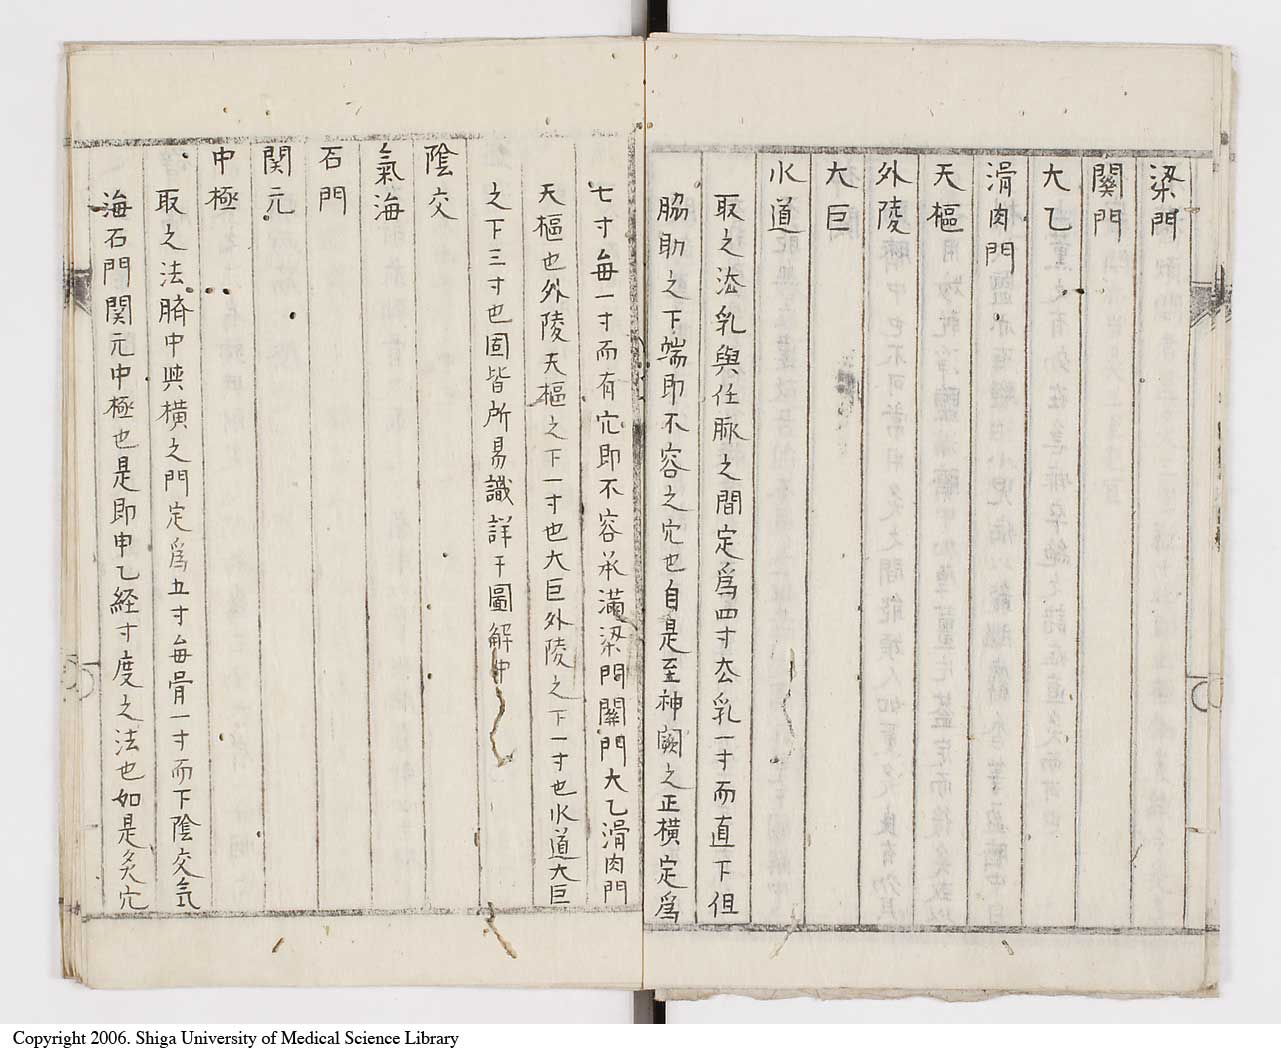 梁門
関門
大乙
滑肉門
天樞
外陵
大巨
水道
取之法乳與任脉之間定爲四寸去乳一寸而直下但
脇肋之下端即不容之穴也自是至神闕之正横定爲
七寸每一寸而有穴即不容承滿梁門關門大乙滑肉門
天樞也外陵天樞之下一寸也大巨外陵之下一寸也水道大巨
之下三寸也固皆所易識詳于圖解中
陰交
氣海
石門
関元
中極
取之法臍中與横之門定爲五寸每骨一寸而下陰交氣
海石門関元中極也是即甲乙経寸度之法也如是灸穴
Copyright 2006. Shiga University of Medical Science Library